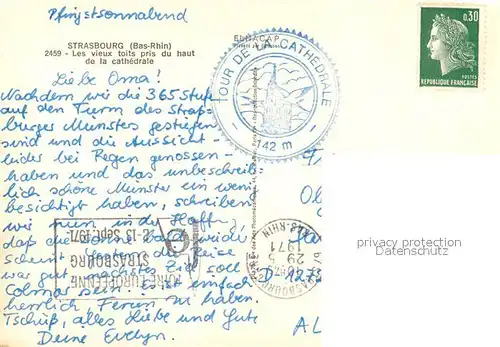 Pfingstsonnabend
STRASBOURG (Bas-Rhin)
2459 - Les vieux toits pris du haut
de la cathédrale
ELHACAP
0,30
POSTES
REPUBLIQUE FRANÇAISE
TOUR DE LA CATHÉDRALE
142 m
Liebe Oma!
Nachdem wir die 365 Stufen
auf den Turm des Straß-
burger Münsters gestiegen
sind und die Aussicht -
leider bei Regen genossen -
haben und das unbeschreib-
lich schöne Münster ein wenig
besichtigt haben, schreiben
wir nun in der Hoff-
daß die Sonne bald wieder
scheint. Reise
war gut. nächstes Ziel soll
Colmar sein. Es ist einfach
herrlich Ferien zu haben.
Tschüß, alles Liebe und Gute
Deine Evelyn.
FOIRE EUROPÉENNE
STRASBOURG
2-13 Sept. 1971
STRASBOURG
BAS-RHIN
29-5
1971
D
A L
privacy protection
Datenschutz